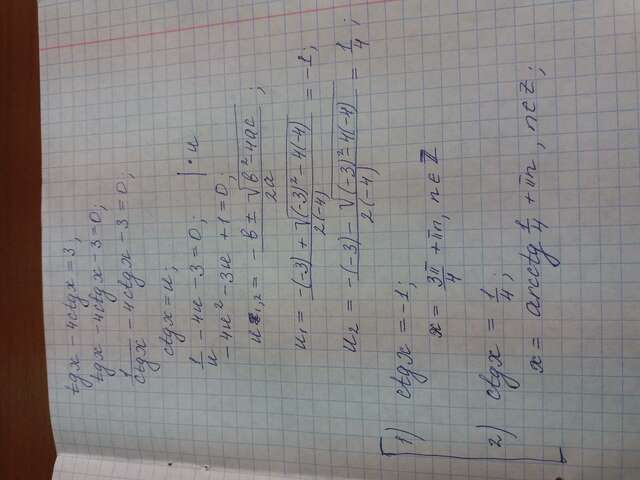 tgx - 4ctgx = 3;
tgx - 4ctgx - 3 = 0;
1/ctgx - 4ctgx - 3 = 0;
ctgx = u;
1/u - 4u - 3 = 0; | · u
-4u² - 3u + 1 = 0;
u₁,₂ = (-b ± √(b² - 4ac))/2a;
u₁ = (-(-3) + √((-3)² - 4(-4)))/2(-4) = -1;
u₂ = (-(-3) - √((-3)² - 4(-4)))/2(-4) = 1/4;
1) ctgx = -1;
x = 3π/4 + πn, n∈Z
2) ctgx = 1/4;
x = arcctg 1/4 + πn, n∈Z;